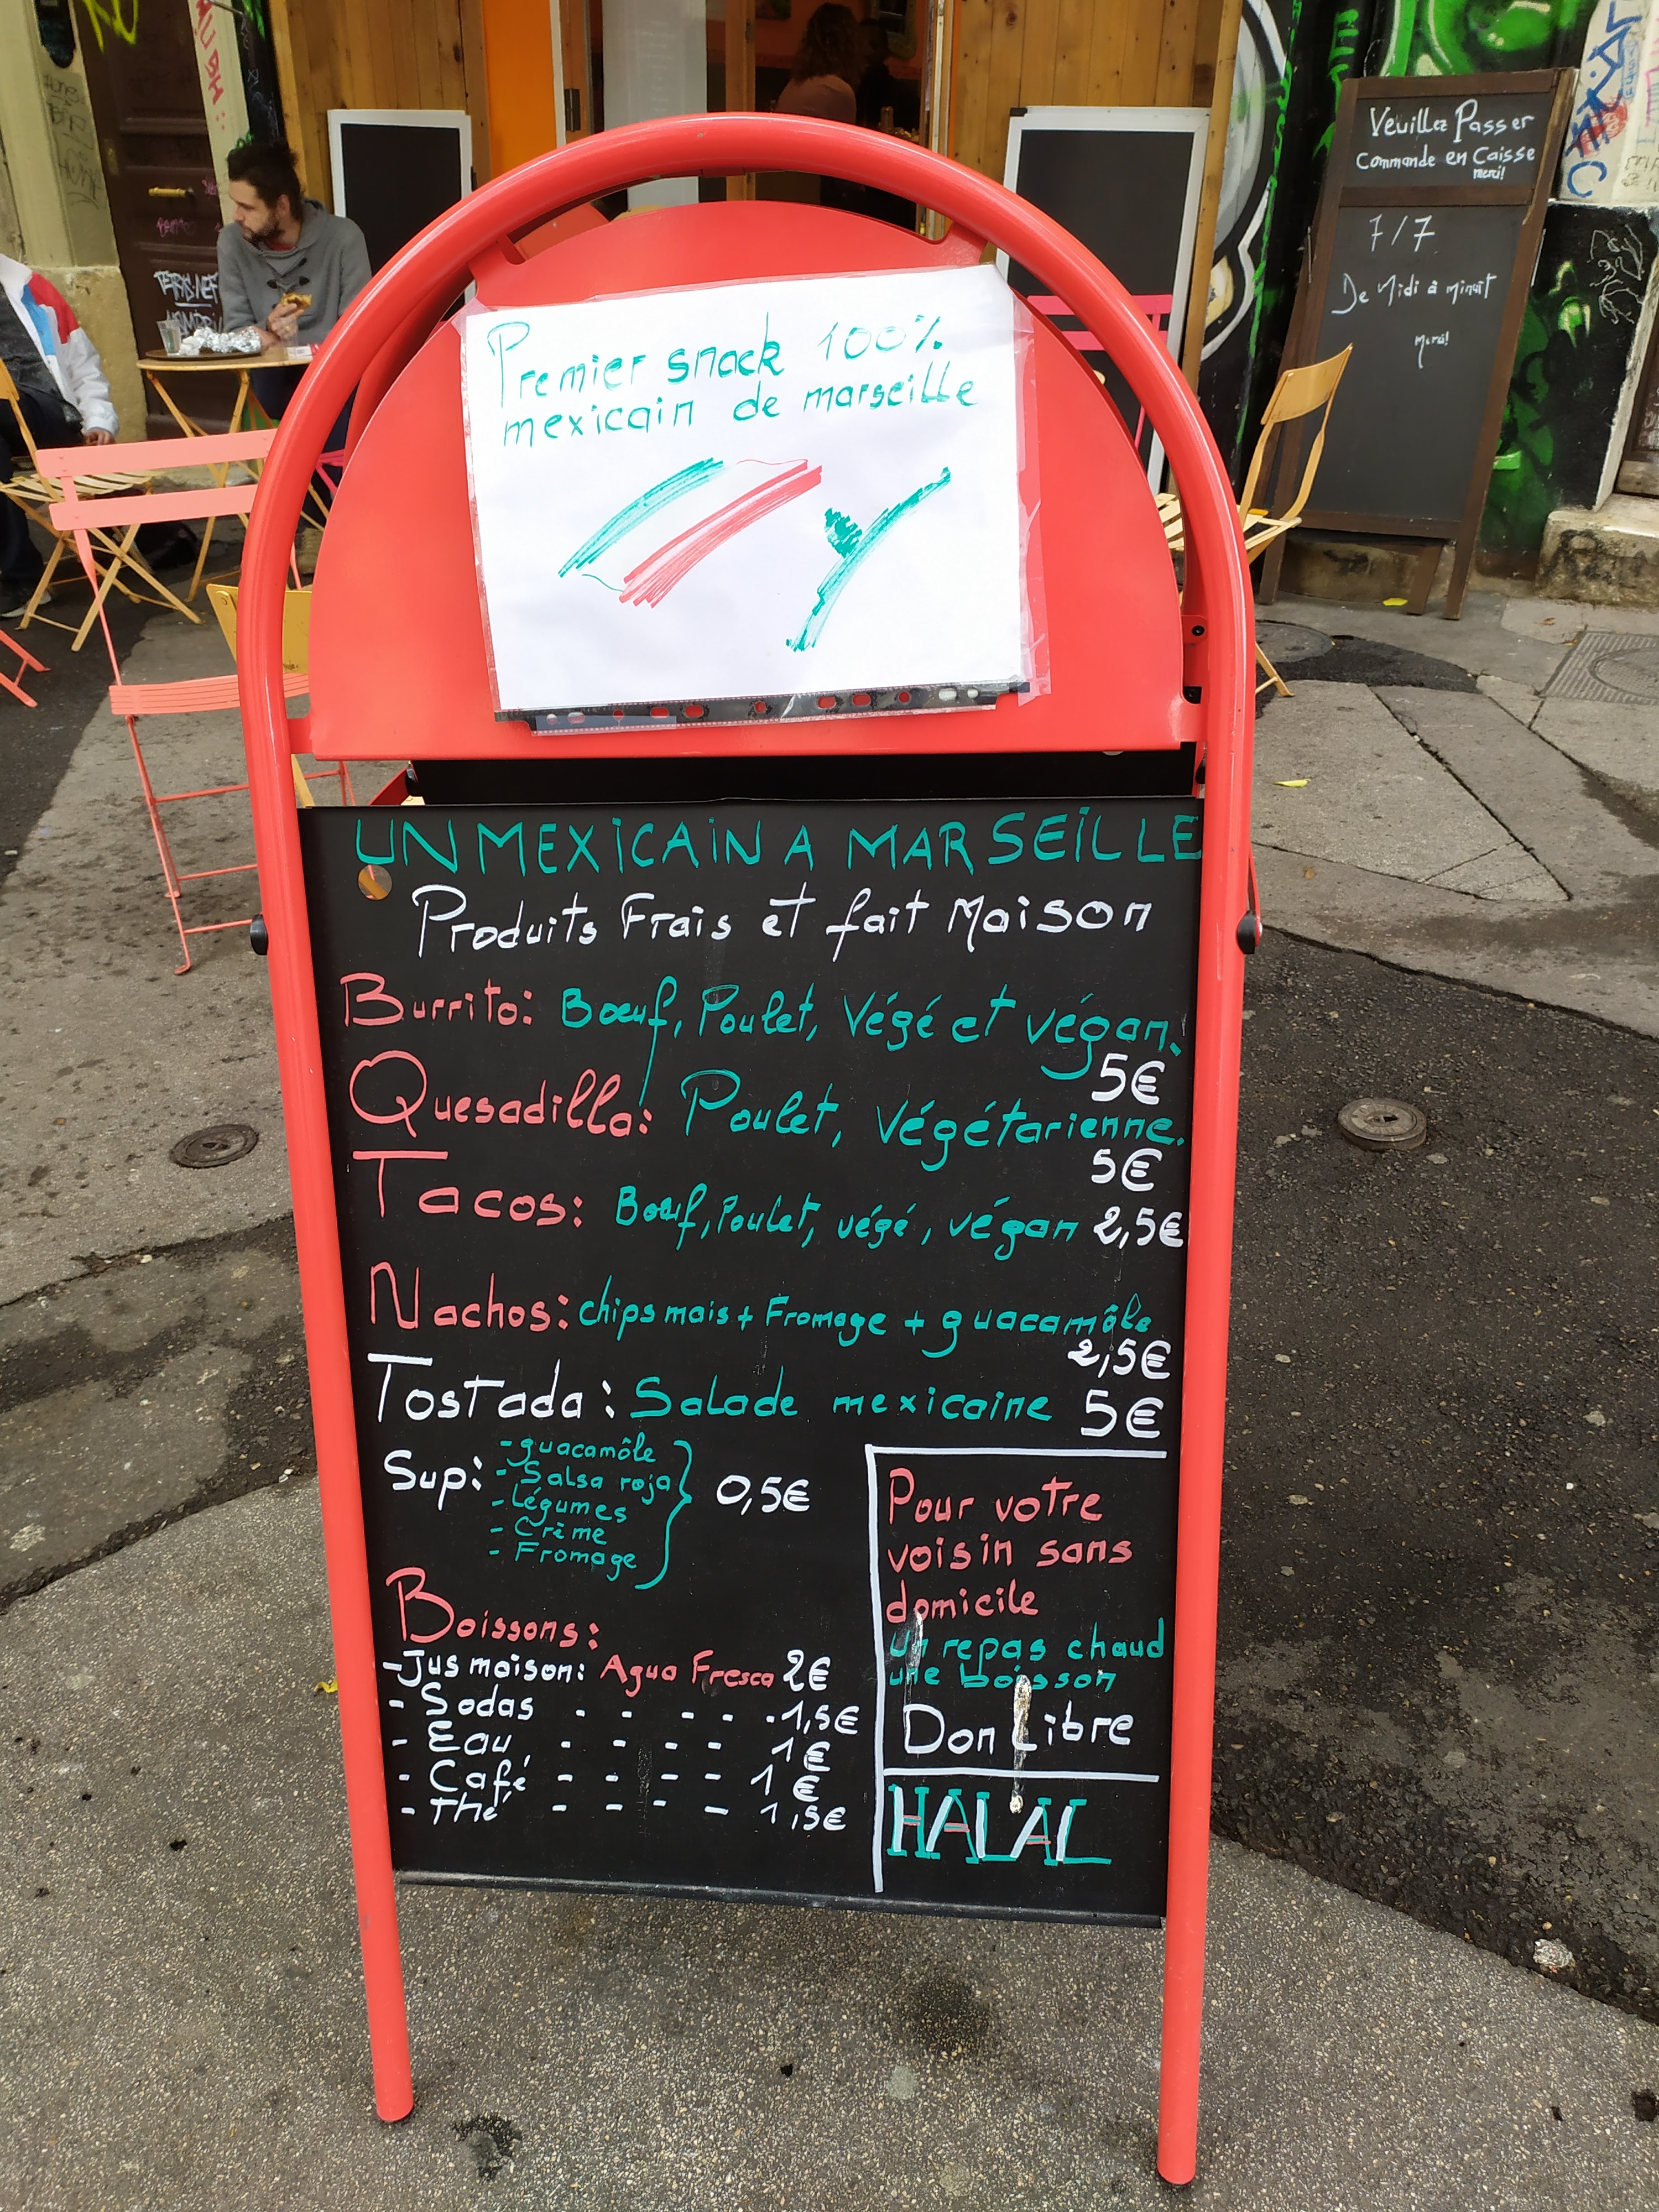 Veuillez Passer
Commande en Caisse
merci!
7/7
De Midi à Minuit
Merci!
Premier snack 100%
mexicain de marseille
UN MEXICAIN A MARSEILLE
Produits Frais et fait Maison
Burrito: Bœuf, Poulet, Végé et végan.
5€
Quesadilla: Poulet, Végétarienne.
5€
Tacos: Bœuf, Poulet, végé, végan 2,5€
Nachos: chips mais + Fromage + guacamôle
2,5€
Tostada: Salade mexicaine 5€
Sup:
- guacamôle
- Salsa roja
- Légumes
- Crème
- Fromage
0,5€
Boissons:
- Jus maison: Agua Fresca 2€
- Sodas - - - - - 1,5€
- Eau - - - - 1€
- Café - - - - 1€
- Thé - - - - 1,5€
Pour votre
voisin sans
domicile
un repas chaud
une boisson
Don Libre
HALAL